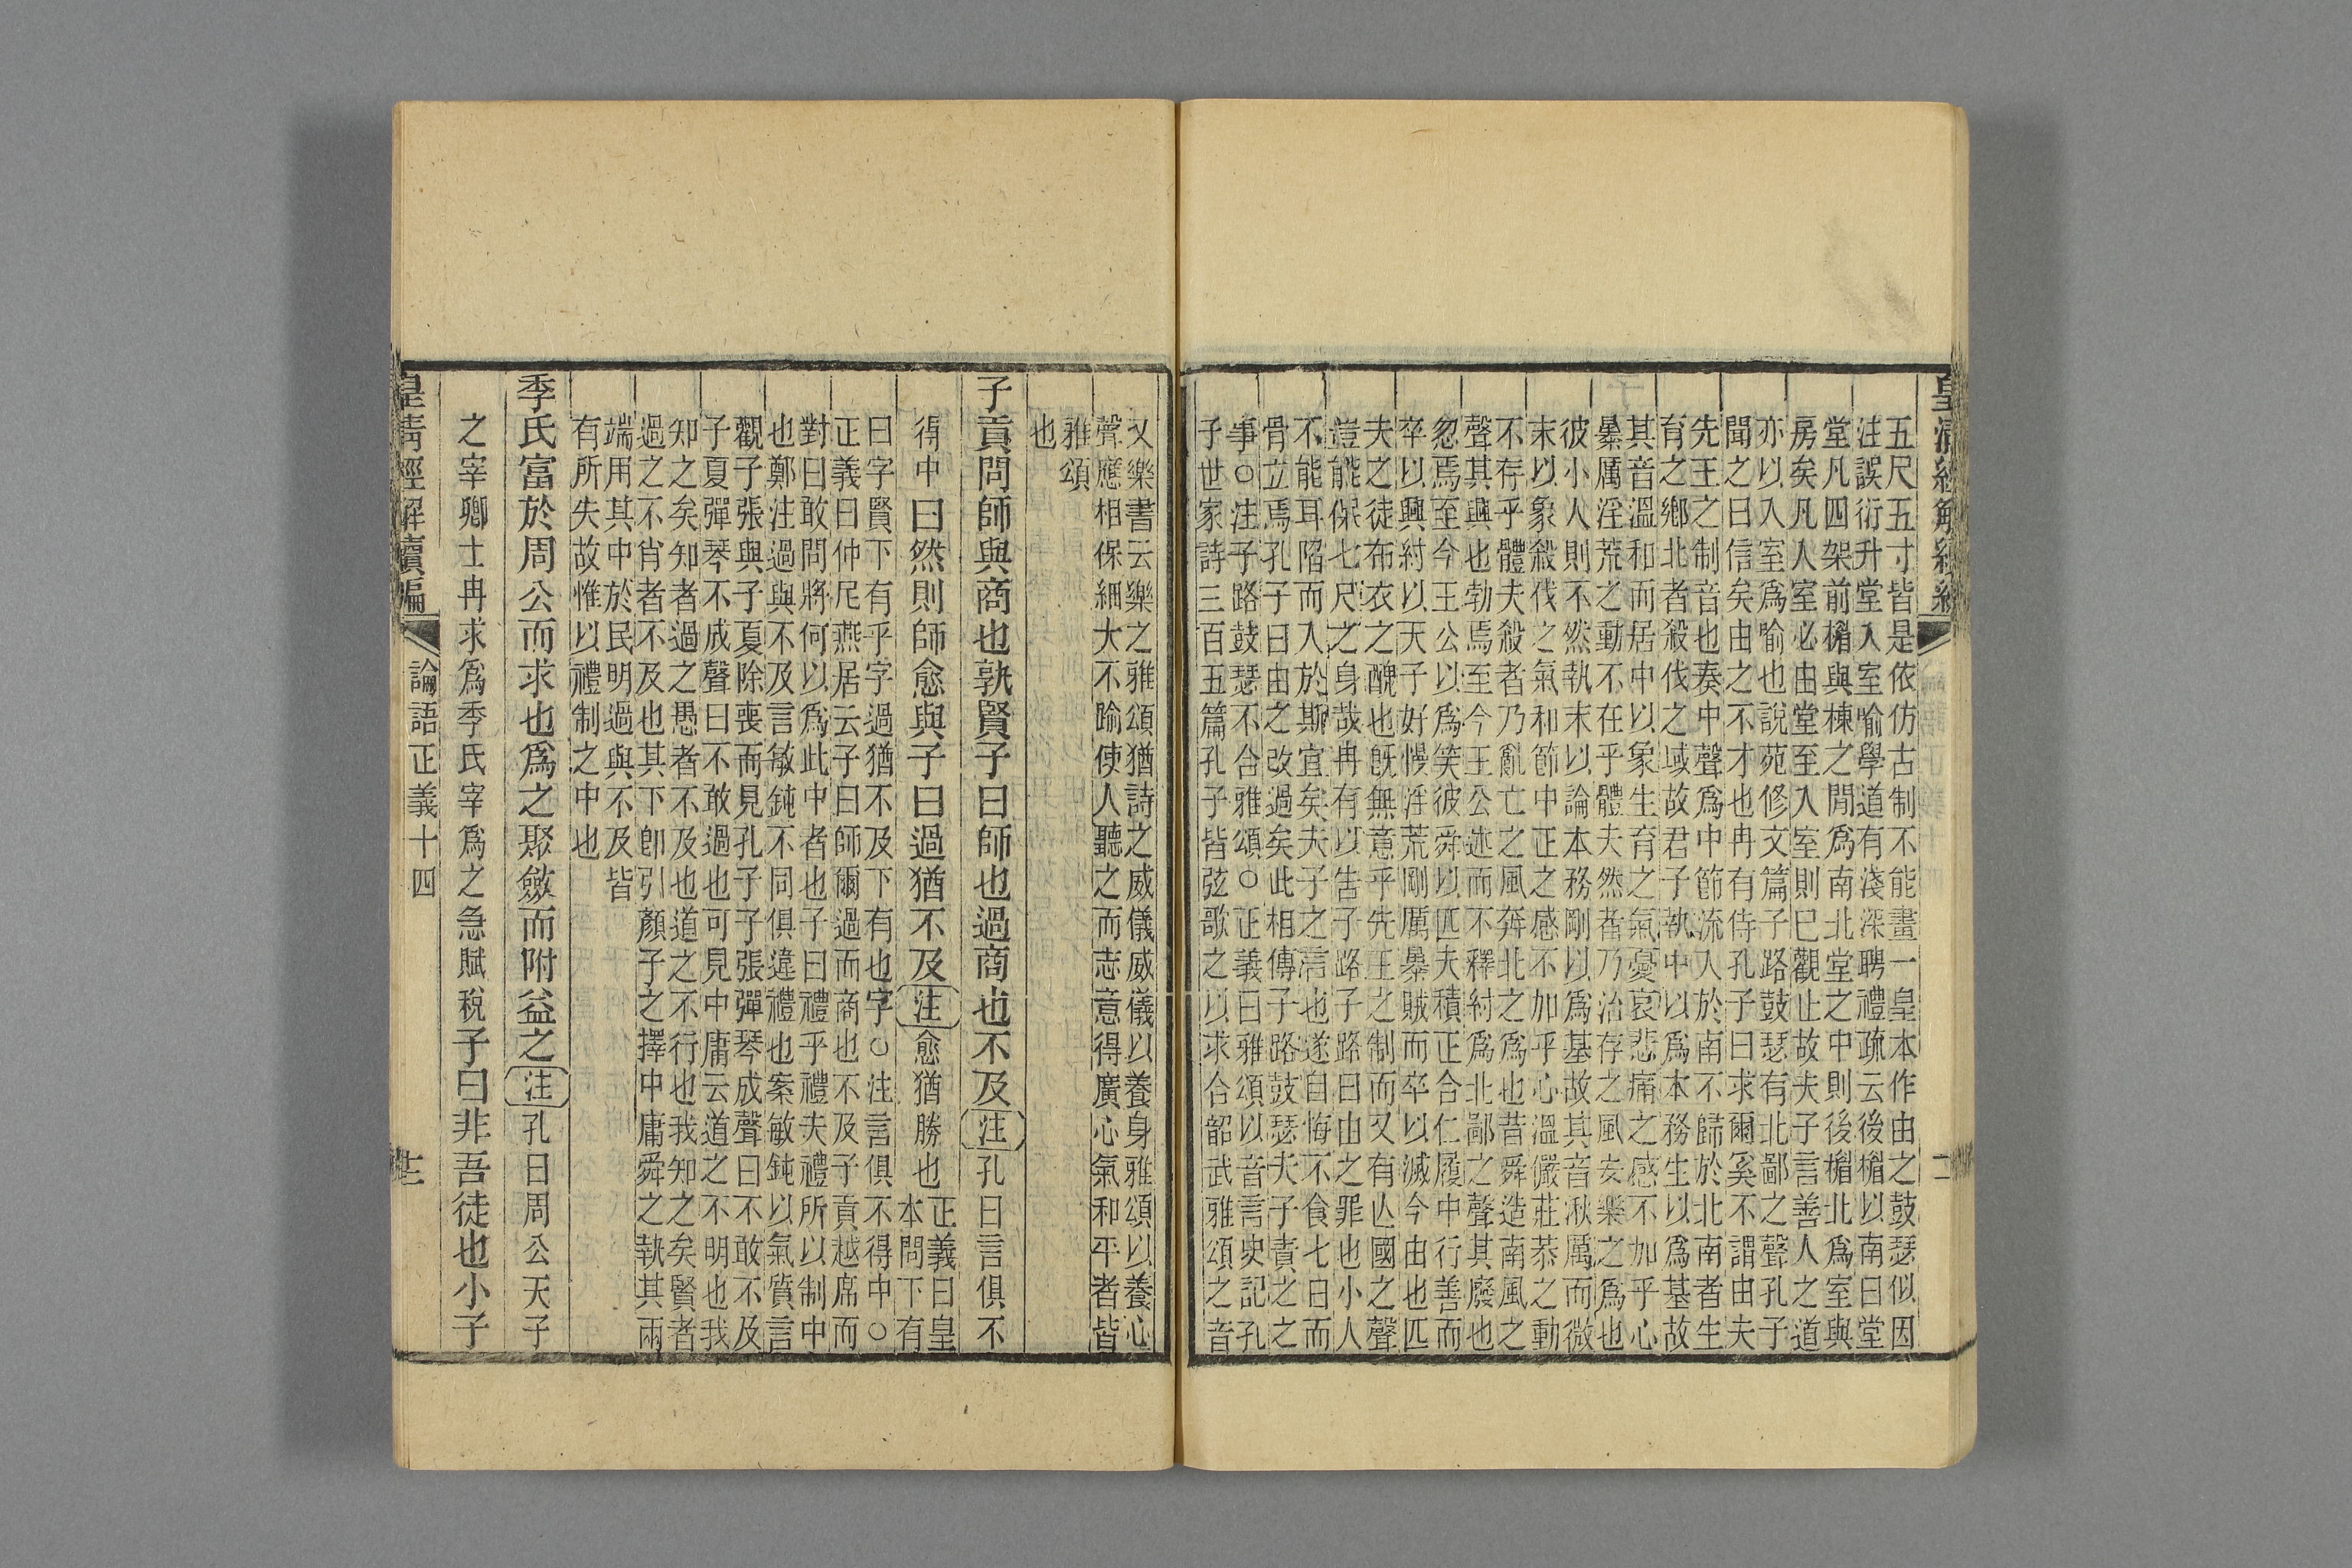 皇清經解續編 二
五尺五寸皆是依仿古制不能畫一皇本作由之鼓瑟似因
注誤衍升堂入室喻學道有淺深聘禮疏云後楣以南曰堂
堂凡四架前楣與棟之閒爲南北堂之中則後楣北爲室與
房矣凡人室必由堂至入室則已觀止故夫子言善人之道
亦以入室爲喻也說苑修文篇子路鼓瑟有北鄙之聲孔子
聞之曰信矣由之不才也冉有侍孔子曰求爾奚不謂由夫
先王之制音也奏中聲爲中節流入於南不歸於北南者生
育之鄉北者殺伐之域故君子執中以爲本務生以爲基故
其音溫和而居中以象生育之氣憂哀悲痛之感不加乎心
暴厲淫荒之動不在乎體夫然者乃治存之風安樂之爲也
彼小人則不然執末以論本務剛以爲基故其音湫厲而微
末以象殺伐之氣和節中正之感不加乎心溫儼莊恭之動
不存乎體夫殺者乃亂亡之風奔北之爲也昔舜造南風之
聲其興也勃焉至今王公述而不釋紂爲北鄙之聲其廢也
忽焉至今王公以爲笑彼舜以匹夫積正合仁履中行善而
卒以興紂以天子好慢淫荒剛厲暴賊而卒以滅今由也匹
夫之徒布衣之醜也旣無意乎先王之制而又有亾國之聲
豈能保七尺之身哉冉有以告子路子路曰由之罪也小人
不能耳陷而入於斯宜矣夫子之言也遂自悔不食七日而
骨立焉孔子曰由之改過矣此相傳子路鼓瑟夫子責之之
事○注子路鼓瑟不合雅頌○正義曰雅頌以音言史記孔
子世家詩三百五篇孔子皆弦歌之以求合韶武雅頌之音
又樂書云樂之雅頌猶詩之威儀威儀以養身雅頌以養心
聲應相保細大不踰使人聽之而志意得廣心氣和平者皆
雅頌
也
子貢問師與商也孰賢子曰師也過商也不及注孔曰言俱不
得中曰然則師愈與子曰過猶不及注愈猶勝也正義曰皇
本問下有
曰字賢下有乎字過猶不及下有也字○注言俱不得中○
正義曰仲尼燕居云子曰師爾過而商也不及子貢越席而
對曰敢問將何以爲此中者也子曰禮乎禮夫禮所以制中
也鄭注過與不及言敏鈍不同俱違禮也案敏鈍以氣質言
觀子張與子夏除喪而見孔子子張彈琴成聲曰不敢不及
子夏彈琴不成聲曰不敢過也可見中庸云道之不明也我
知之矣知者過之愚者不及也道之不行也我知之矣賢者
過之不肖者不及也其下卽引顏子之擇中庸舜之執其兩
端用其中於民明過與不及皆
有所失故惟以禮制之中也
季氏富於周公而求也爲之聚斂而附益之注孔曰周公天子
之宰卿士冉求爲季氏宰爲之急賦稅子曰非吾徒也小子
皇清經解續編 論語正義十四